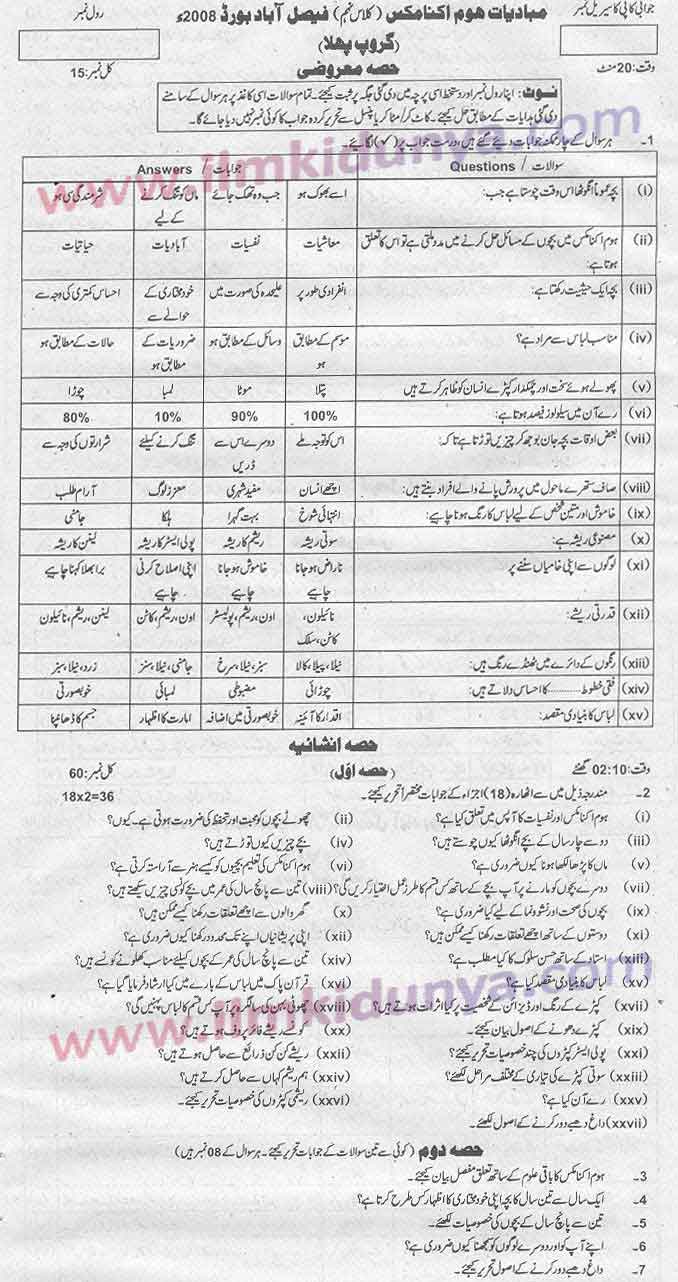 جوابی کاپی کا سیریل نمبر مبادیات ھوم اکنامکس (کلاس نہم) فیصل آباد بورڈ 2008ء رول نمبر
(گروپ پھلا)
وقت: 20 منٹ حصه معروضی کل نمبر: 15
نوٹ: اپنا رول نمبر اور دستخط اسی پرچہ میں دی گئی جگہ پر ثبت کیجئے۔ تمام سوالات اسی کاغذ پر ہر سوال کے سامنے
دی گئی ہدایات کے مطابق حل کیجئے۔ کاٹ کر/ مٹا کر یا پنسل سے تحریر کردہ جواب کا کوئی نمبر نہیں دیا جائے گا۔
1- ہر سوال کے چار ممکنہ جوابات دئیے گئے ہیں، درست جواب پر (✓) لگائیے۔
سوالات / Questions جوابات / Answers
(i) بچہ عموماً انگوٹھا اس وقت چوستا ہے جب: اسے بھوک ہو جب وہ تھک جائے ماں کو تنگ کرنے کے لیے شرمندگی سی ہو
(ii) ہوم اکنامکس میں بچوں کے مسائل حل کرنے میں مدد ملتی ہے تو اس کا تعلق ہوتا ہے: معاشیات نفسیات آبادیات حیاتیات
(iii) بچہ ایک حیثیت رکھتا ہے: انفرادی طور پر علیحدہ کی صورت میں خود مختاری کے حوالے سے احساس کمتری کی وجہ سے
(iv) مناسب لباس سے مراد ہے؟ موسم کے مطابق ہو وسائل کے مطابق ہو ضروریات کے مطابق ہو حالات کے مطابق ہو
(v) پھولے ہوئے سخت اور چمکدار کپڑے انسان کو ظاہر کرتے ہیں پتلا موٹا لمبا چوڑا
(vi) رے آن میں سیلولوز فیصد ہوتا ہے: 100% 90% 10% 80%
(vii) بعض اوقات بچہ جان بوجھ کر چیزیں توڑتا ہے تاکہ: اس کو توجہ ملے دوسرے اس سے ڈریں تنگ کرنے کیلئے شرارتوں کی وجہ سے
(viii) صاف ستھرے ماحول میں پرورش پانے والے افراد بنتے ہیں: اچھے انسان مفید شہری معزز لوگ آرام طلب
(ix) خاموش اور متین شخص کے لیے لباس کا رنگ ہونا چاہیے: انتہائی شوخ بہت گہرا ہلکا جامنی
(x) مصنوعی ریشہ ہے: سوتی ریشہ ریشم کا ریشہ پولی ایسٹر کا ریشہ لینن کا ریشہ
(xi) لوگوں سے اپنی خامیاں سننے پر ناراض ہو جانا چاہیے خاموش ہو جانا چاہیے اپنی اصلاح کرنی چاہیے برا بھلا کہنا چاہیے
(xii) قدرتی ریشے: نائیلون، کاٹن، سلک اون، ریشم، پولیسٹر اون، ریشم، کاٹن لینن، ریشم، نائیلون
(xiii) رنگوں کے دائرے میں ٹھنڈے رنگ ہیں: نیلا، پیلا، کالا سبز، نیلا، سرخ جامنی، نیلا، سبز زرد، نیلا، سبز
(xiv) افقی خطوط............کا احساس دلاتے ہیں: چوڑائی مضبوطی لمبائی خوبصورتی
(xv) لباس کا بنیادی مقصد: اقدار کا آئینہ خوبصورتی میں اضافہ امارت کا اظہار جسم کا ڈھانپنا
حصه انشائیه
وقت: 02:10 گھنٹے (حصه اوّل) کل نمبر: 60
2- مندرجہ ذیل میں سے اٹھارہ (18) اجزاء کے جوابات مختصراً تحریر کیجئے۔ 18x2=36
(i) ہوم اکنامکس اور نفسیات کا آپس میں تعلق کیا ہے؟ (ii) چھوٹے بچوں کو محبت اور تحفظ کی ضرورت ہوتی ہے۔ کیوں؟
(iii) دو سے چار سال کے بچے انگوٹھا کیوں چوستے ہیں؟ (iv) بچے چیزیں کیوں توڑتے ہیں؟
(v) ماں کا پڑھا لکھا ہونا کیوں ضروری ہے؟ (vi) ہوم اکنامکس کی تعلیم بچیوں کو کیسے ہنر سے آراستہ کرتی ہے؟
(vii) دوسرے بچوں کو مارنے پر آپ بچے کے ساتھ کس قسم کا طرز عمل اختیار کریں گی؟ (viii) تین سے پانچ سال کی عمر میں بچے کونسی چیزیں سیکھتے ہیں؟
(ix) بچوں کی صحت اور نشوونما کے لیے کیا ضروری ہے؟ (x) گھر والوں سے اچھے تعلقات رکھنا کیسے ممکن ہیں؟
(xi) دوستوں کے ساتھ اچھے تعلقات رکھنا کیسے ممکن ہیں؟ (xii) اپنی پریشانیاں اپنے تک محدود رکھنا کیوں ضروری ہے؟
(xiii) استاد کے ساتھ حسن سلوک کا کیا مطلب ہے؟ (xiv) تین سے پانچ سال کی عمر کے بچوں کیلئے مناسب کھلونے کونسے ہیں؟
(xv) لباس کا بنیادی مقصد کیا ہے؟ (xvi) قرآن پاک میں لباس کے بارے میں کیا ارشاد فرمایا گیا ہے؟
(xvii) کپڑے کے رنگ اور ڈیزائن کے شخصیت پر کیا اثرات ہوتے ہیں؟ (xviii) چھوٹی بہن کی سالگرہ پر آپ کس قسم کا لباس پہنیں گی؟
(xix) کپڑے دھونے کے اصول بیان کیجئے۔ (xx) کونسے ریشے فائر پروف ہوتے ہیں؟
(xxi) پولی ایسٹر کپڑوں کی چند خصوصیات تحریر کیجئے؟ (xxii) ریشے کن کن ذرائع سے حاصل ہوتے ہیں؟
(xxiii) سوتی کپڑے کی تیاری کے مختلف مراحل لکھئے؟ (xxiv) ہم ریشم کہاں سے حاصل کرتے ہیں؟
(xxv) رے آن کیا ہے؟ (xxvi) ریشمی کپڑوں کی خصوصیات تحریر کیجئے؟
(xxvii) داغ دھبے دور کرنے کے اصول لکھئے۔
حصه دوم (کوئی سے تین سوالات کے جوابات تحریر کیجئے۔ ہر سوال کے 08 نمبر ہیں)
3- ہوم اکنامکس کا باقی علوم کے ساتھ تعلق مفصل بیان کیجئے۔
4- ایک سال سے تین سال کا بچہ اپنی خود مختاری کا اظہار کس طرح کرتا ہے؟
5- تین سے پانچ سال کے بچوں کی خصوصیات لکھئے۔
6- اپنے آپ کو اور دوسرے لوگوں کو سمجھنا کیوں ضروری ہے؟
7- داغ دھبے دور کرنے کے اصول تحریر کیجئے۔
www.ilmkidunya.com
www.ilmkidunya.com